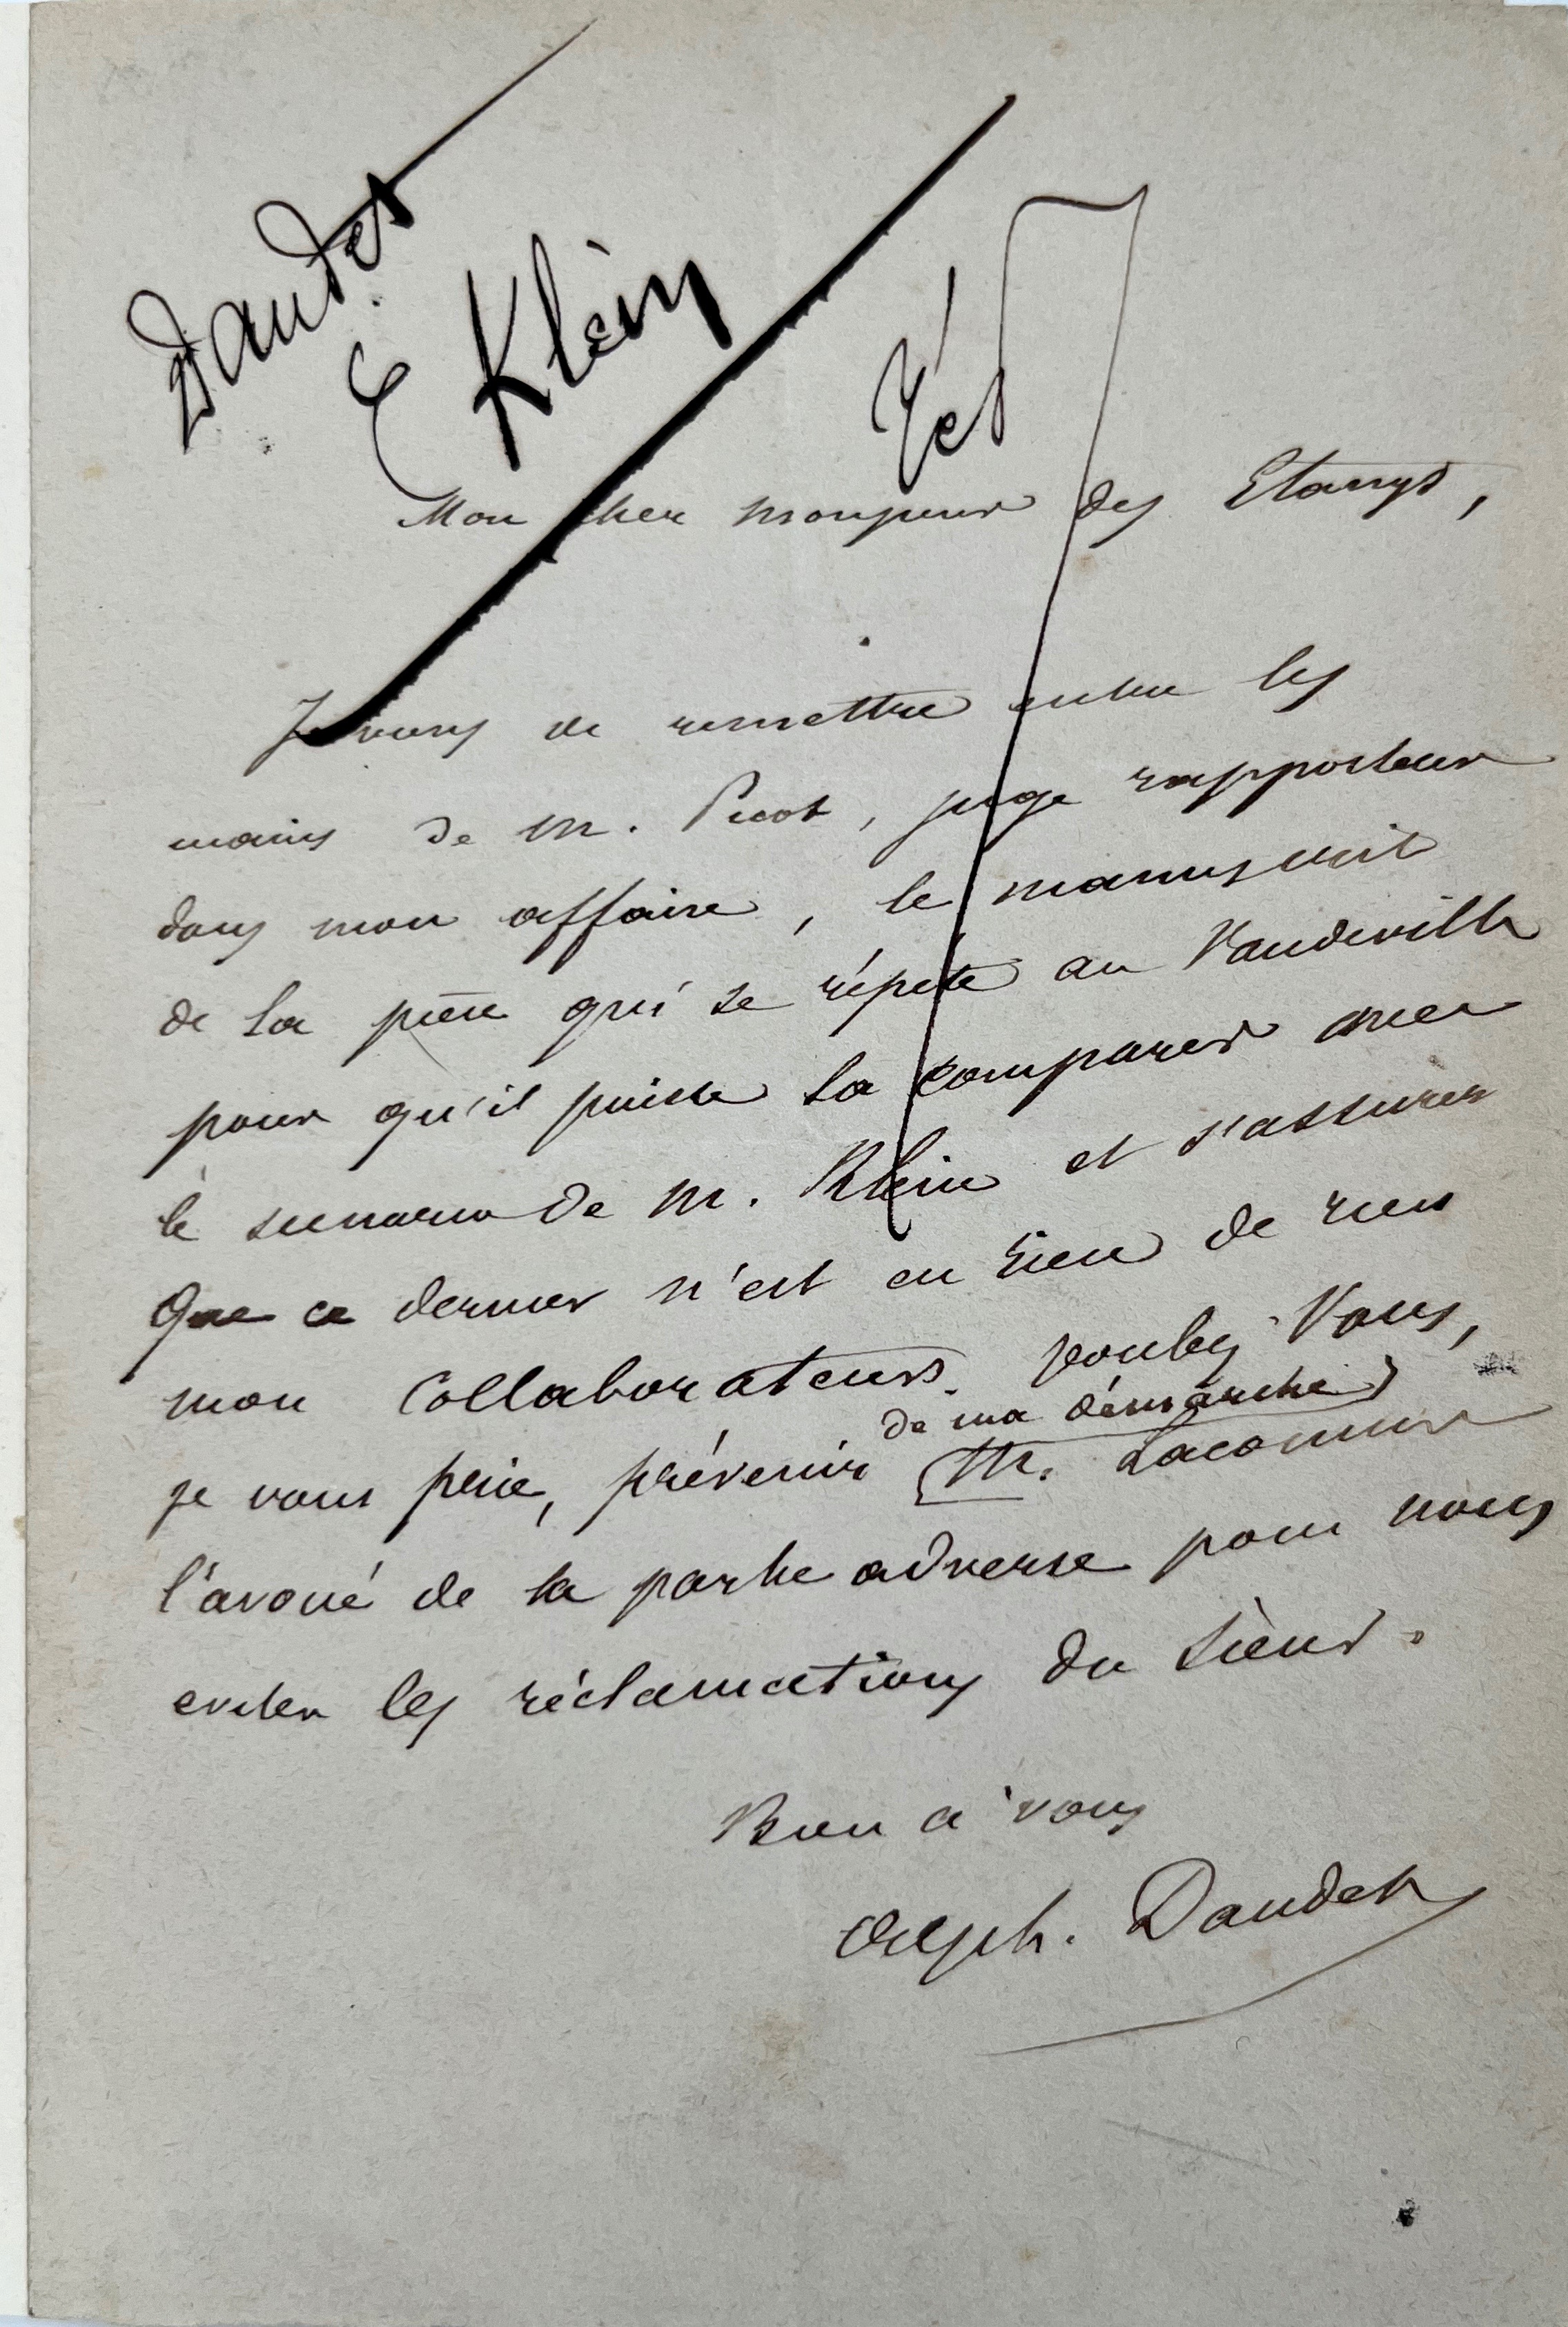 Daudet
C Klein
Rés
Mon cher monsieur des Etangs,
Je viens de remettre entre les
mains de M. Picot, juge rapporteur
dans mon affaire, le manuscrit
de la pièce qui se répète au Vaudeville
pour qu'il puisse la comparer avec
le scenario de M. Klein et s'assurer
que ce dernier n'est en rien de rien
mon Collaborateur. Voulez Vous,
de ma démarche
je vous prie, prévenir M.
l'avoué de la partie adverse pour nous
eviter les réclamations du sieur.
Bien à vous
Alph. Daudet